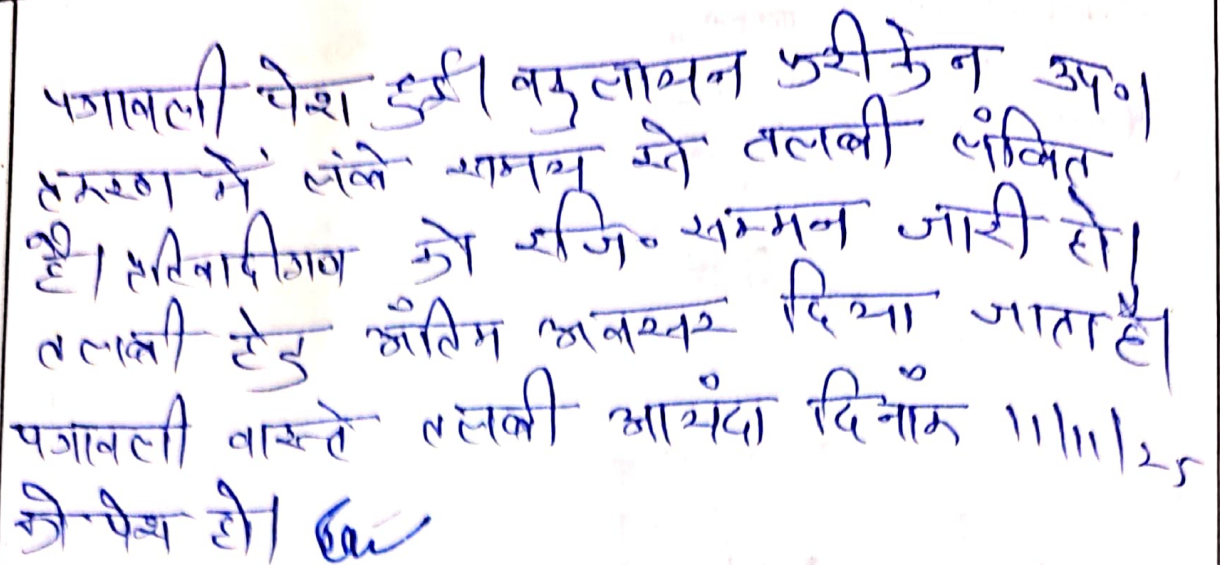 पत्रावली पेश हुई। वकुलायन फरीकेन उप०।
प्रकरण में लंबे समय से तलबी लंबित
है। प्रतिवादीगण को रजि० सम्मन जारी हो।
तलबी हेतु अंतिम अवसर दिया जाता है।
पत्रावली वास्ते तलबी आयंदा दिनाँक 11/11/25
को पेश हो।